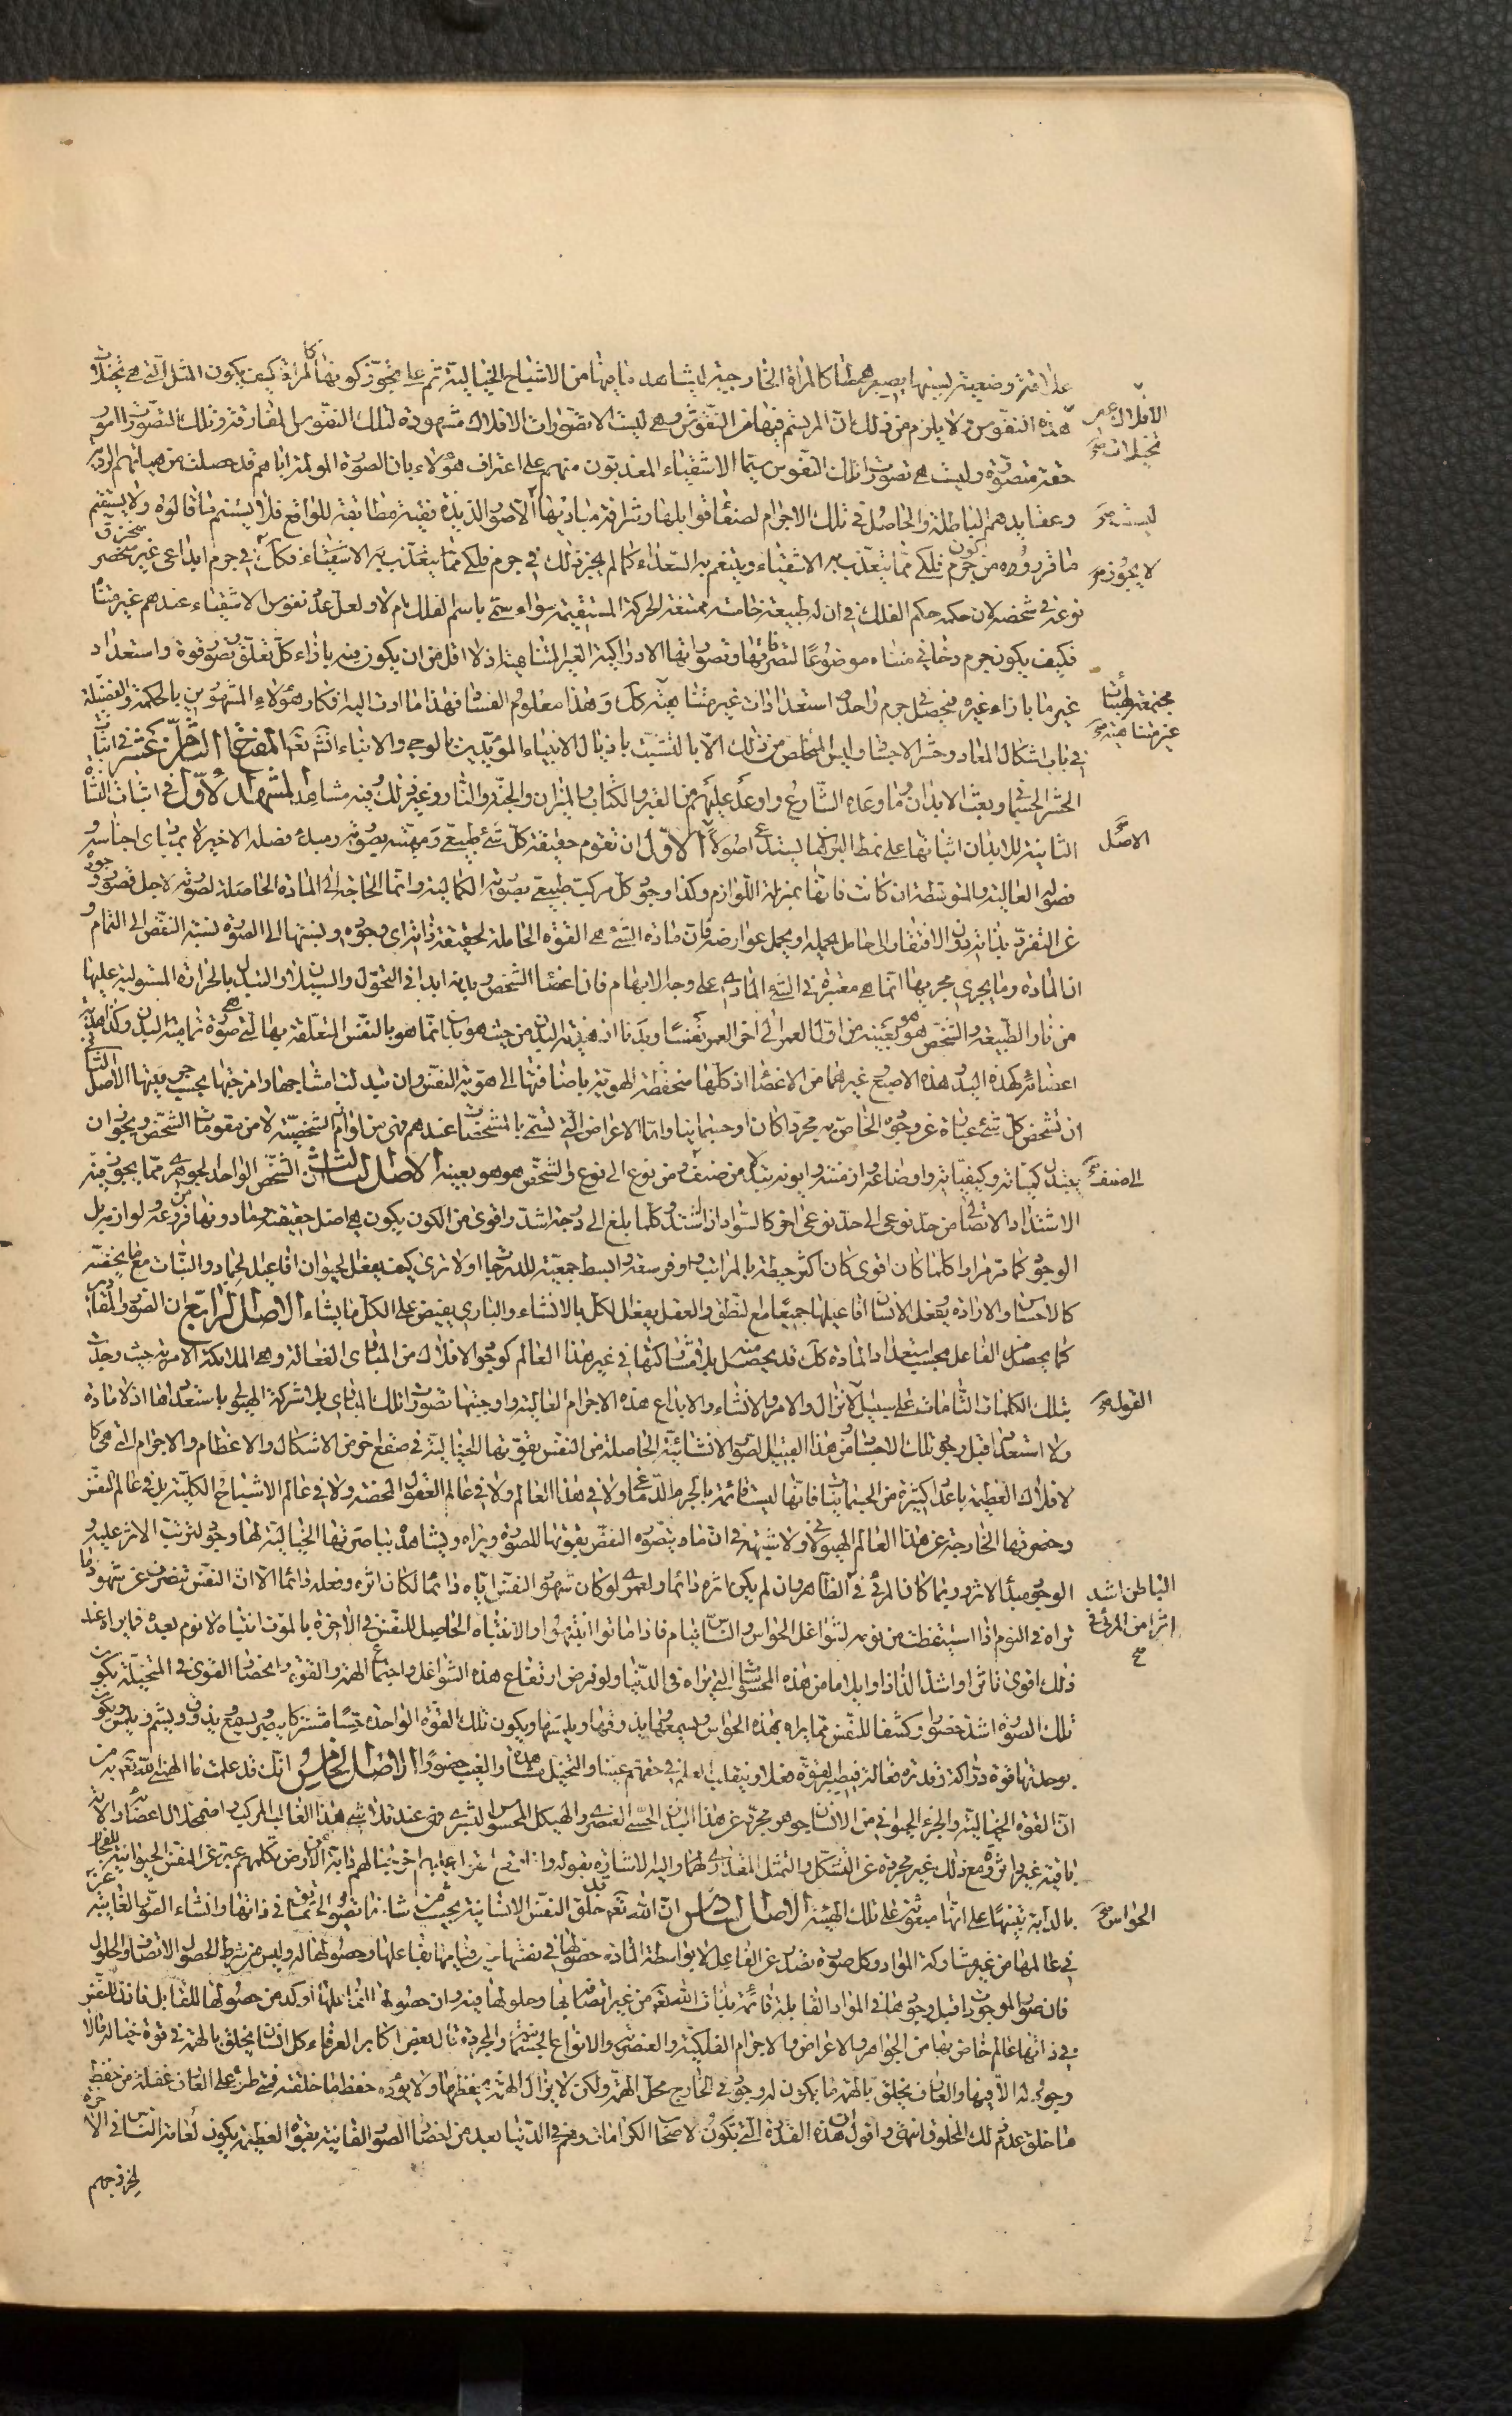 علاقة وضعية بسببها يصير محطا كالمرآة الخارجية ليشاهد ما فيها من الاشباح الخيالية ثم على تجويز كونها كالمرآة كيف يكون المثل التي هي تخيلات
هذه النفوس ولا يلزم من ذلك ان المرتسم فيها من النقوش وهي ليست الا تصورات الافلاك مشهودة لتلك النفوس المفارقة وتلك التصورات امور
حقة متصورة وليست هي تصورات تلك النفوس سيما الاشقياء المعذبون منهم على اعتراف هؤلاء بان الصورة المولمة اياهم قد حصلت من هيآتهم الردية
وعقايدهم الباطلة والحاصل في تلك الاجرام لصفاء قوابلها وشرافة مباديها الا صور الذيذة نقية مطابقة للواقع فلا يستتم ما قالوه ولا يستقيم
ما قرروه من كون جرم فلكي مما يتعذب به الاشقياء ويتنعم به السعداء كما لم يجز ذلك في جرم فلكي مما يتعذب به الاشقياء فكذا في جرم ابداعي غير منخرق منحصر
نوعه في شخصه لان حكمه حكم الفلك في ان له طبيعة خامسة ممتنعة الحركة المستقيمة سواء سمي باسم الفلك ام لا ولعل عدد نفوس الاشقياء عندهم غير متناه
فكيف يكون جرم دخاني متناه موضوعا لتصرفاتها وتصوراتها الادراكية الغير المتناهية اذ لا اقل من ان يكون فيه بازاء كل تعلق وتصور قوة واستعداد
غير ما بازاء غيره فيحصل في جرم واحد استعدادات غير متناهية كل وهذا معلوم الفساد فهذا ما ادت اليه افكار هؤلاء المشهورين بالحكمة والفضيلة
في باب اشكال المعاد وحشر الاجساد وليس المخلص من ذلك الا بالتشبث باذيال الانبياء المؤيدين بالوحي والانباء انشاء الله تعالى المفتاح الثامن عشر في اثبات
الحشر الجسماني وبعث الابدان وما وعده الشارع واوعد عليهم من القبر والكتاب والميزان والجنة والنار وغير ذلك وفيه مشاهد المشهد الاول في اثبات النشأة
الثانية للابدان اثباتها على نمط البرهان يستدعي اصولا الاول ان تقوم حقيقة كل شيء طبيعي ومهيته بصورته ومبدء فصله الاخير لا بمبادي اجناسه و
فصوله العالية والمتوسطة ان كانت فانها بمنزلة اللوازم وكذا وجود كل مركب طبيعي بصورته الكمالية وانما الحاجة الى المادة الحاملة لصورته لاجل قصور وجوده
عن التفرد بذاته دون الافتقار الى حامل يحمله او يحمل عوارضه فان مادة الشيء هي القوة الحاملة لحقيقة ذاته اي وجوده ونسبتها الى الصورة نسبة النقص الى التمام و
ان المادة وما يجري مجريها انما هي معتبرة في الشيء المادي على وجه الابهام فان اعضاء الشخص وبدنه ابدا في التحول والسيلان والتبدل بالحرارة المستولية عليها
من نار الطبيعة والشخص هو هو بعينه من اول العمر الى اخر العمر نفسا وبدنا ان هوية البدن من حيث هو بدن انما هو بالنفس المتعلقة بها التي هي صورة تمامية البدن وكذا هوية
اعضائه كهذه اليد وهذه الاصبع وغيرهما من الاعضاء اذ كلها منحفظة الهوية باضافتها الى هوية النفس وان تبدلت امشاجها وامزجتها بحسب جسميتها الاصل الثاني
ان تشخص كل شيء عبارة عن وجوده الخاص به مجردا كان او جسمانيا واما الاعراض التي تسمى بالمشخصات عندهم فهي من لوازم الشخصية لا من مقومات الشخص ويجوز ان
يتبدل كمياته وكيفياته واوضاعه وازمنته وايونه تبدلا من صنف ومن نوع الى نوع والشخص هو هو بعينه الاصل الثالث ان الشخص الواحد الجوهري مما يجوز فيه
الاشتداد الاتصالي من حد نوعي الى حد نوعي اخر كالسواد اذا اشتد وكلما بلغ الى درجة اشد واقوى من الكون يكون هي اصل حقيقته وما دونها من فروعه ولوازمه بل
الوجود كما مر مرارا كلما كان اقوى كان اكثر حيطة بالمراتب واوفر سعة وابسط جمعية للدرجات اولا ترى كيف يفعل الحيوان افاعيل الجماد والنبات مع ما يخصه
كالاحساس والارادة ويفعل الانسان افاعيلها جميعا مع النطق والعقل يفعل الكل بالانشاء والباري يفيض على الكل ما يشاء الاصل الرابع ان الصور والمقادير
كما يحصل من الفاعل بحسب استعداد المادة كل قد يحصل منه بلا مشاركتها في غير هذا العالم كوجود الافلاك من المبادي الفعالة وهي الملائكة الامرية حيث وجدت
بتلك الكلمات التامات على سبيل الانزال والامر والانشاء والابداع هذه الاجرام العالية واوجبتها تصورات تلك المبادي بلا شركة الهيولى باستعدادها اذ لا مادة
ولا استعداد قبل وجود تلك الاجسام ومن هذا القبيل الصور الانشائية الحاصلة من النفس بقوتها الخيالية في صقع اخر من الاشكال والاعظام والاجرام التي هي كا
لافلاك العظيمة باعداد كثيرة من الجسمانيات فانها ليست قائمة بالجرم الدماغي ولا في هذا العالم ولا في عالم العقول المحضة ولا في عالم الاشباح الكلية بل في عالم النفس
وحضرتها الخارجة عن هذا العالم الهيولاني ولا شبهة في ان ما يتصوره النفس بقوتها المصورة ويراه ويشاهده بباصرتها الخيالية لها وجود لترتب الاثر عليه و
الوجود مبدأ الاثر وربما كان المرئي في الظاهر وان لم يكن اثره دائما ولعمري لو كان شهود النفس اياه دائما لكان اثره وفعله دائما الا ان النفس تنصرف عن شهود ما
تراه في النوم اذا استيقظت من نومه لشواغل الحواس والناس نيام فاذا ماتوا انتبهوا والانتباه الحاصل للنفس في الآخرة بالموت انتباه لا نوم بعده فما يراه عند
ذلك اقوى تأثيرا واشد الذاذا وايلاما من هذه المحسوسات التي يراه في الدنيا ولو فرض ارتفاع هذه الشواغل واجتماع الهمة والقوى وانحصار القوى في المتخيلة يكون
تلك الصورة اشد حضورا وكشفا للنفس مما يراه بهذه الحواس ويسمعها ويذوقها ويلمسها ويكون تلك القوة الواحدة حسا مشتركا يبصر ويسمع ويذوق ويشم ويلمس ويكون
بوحدتها قوة دراكة وقدرة فعالة فيصير القوة فعلا وينقلب العلم في حقهم عينا والتخيل مشاهدة والغيب حضورا الاصل الخامس انك قد علمت ما الهمني الله تعالى به من
ان القوة الخيالية والجزء الحيواني من الانسان جوهر مجرد عن هذا البدن الحسي العنصري والهيكل المحسوس البشري فهي عند تلاشي هذا القالب المركب واضمحلال اعضائه والاته
باقية غير داثرة ومع ذلك غير مجردة عن التشكل والتمثل المقداري لهما واليه الاشارة بقوله واذا وقع القول عليهم اخرجنا لهم دابة من الارض تكلمهم عبر عن النفس الحيوانية
بالدابة تنبيها على انها مبعوثة على تلك الهيئة الاصل السادس ان الله تعالى خلق النفس الانسانية بحيث من شانها تصور الحقائق في ذاتها وانشاء الصور الغائبة عن
في عالمها من غير مشاركة المواد وكل صورة تصدر عن الفاعل لا بواسطة المادة حصولها في نفسها عين قيامها بفاعلها وحصولها له وليس من شرط الحصول الاتصاف والحلول
فان صور الموجودات قبل وجودها في المواد القابلة قائمة بذات الله تعالى من غير اتصافه بها وحلولها فيه وان حصولها لفاعلها اوكد من حصولها للقابل فاذن للنفس
في ذاتها عالم خاص بها من الجواهر والاعراض والاجرام الفلكية والعنصرية والانواع الجسمانية والمجردة قال بعض اكابر العرفاء كل انسان يخلق بالهمة في قوة خياله ما لا
وجود له الا فيها والعارف يخلق بالهمة ما يكون له وجود في الخارج محل الهمة ولكن لا يزال الهمة يحفظها ولا يؤده حفظ ما خلقته فمتى طرء على العارف غفلة من حفظ
ما خلق عدم ذلك المخلوق انتهى واقول ان هذه القدرة التي تكون لاصحاب الكرامات وهم في الدنيا بعد من احضار الصور القائمة بقوة العظيمة يكون لعامة الناس في الآخرة
الافلاك صح
تخيلات صح
ليست صح
لا يجوز صح
مجتمعة هيئات
غير متناهية صح
الاصل
الى صنف
القول صح
الباطن اشد
اثرا من المرئي في
صح
الحواس صح